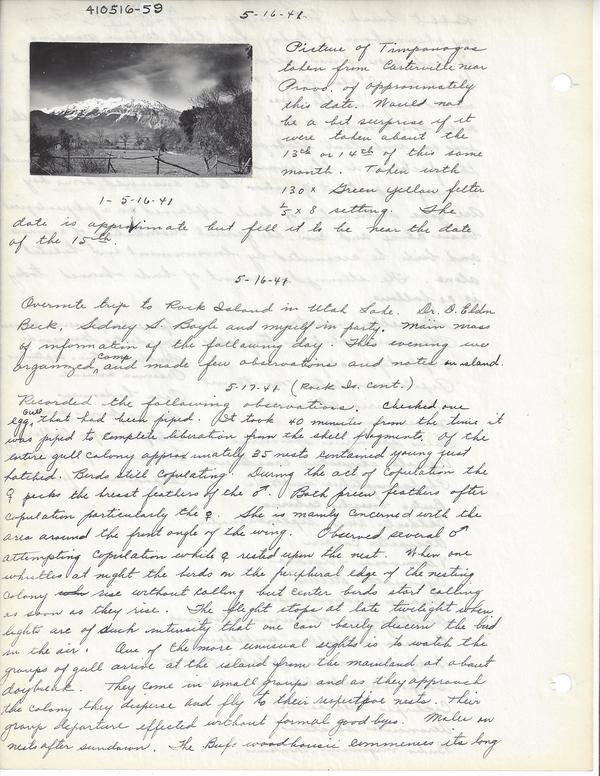 410516-59
5-16-41
Picture of Timpanogas
taken from Carterville near
Provo. of approximately
this date. Would not
be a bit surprise if it
were taken about the
13th or 14th of this same
month. Taken with
130 x Green Yellow filter
1/5 x 8 setting. The
1- 5-16-41
date is approximate but fell it to be near the date
of the 15th.
5-16-41
Overnite trip to Rock Island in Utah Lake. Dr. D. Eldon
Beck, Sidney S. Boyle and myself in party. Main mass
of information of the following day. This evening we
organized camp and made few observations and notes on island.
5-17-41 (Rock Is. cont.)
Recorded the following observations. Checked one
gull egg, that had been piped. It took 40 minutes from the time it
was piped to complete liberation from the shell fragments. Of the
entire gull colony approximately 35 nests contained young just
hatched. Birds still copulating. During the act of copulation the
♀ pecks the breast feathers of the ♂. Both preen feathers after
copulation particularly the ♀. She is mainly concerned with the
area around the front angle of the wing. Observed several ♂
attempting copulation while ♀ rested upon the nest. When one
whistles at night the birds on the peripheral edge of the nesting
colony rise without calling but center birds start calling
as soon as they rise. The flight stops at late twilight when
lights are of such intensity that one can barely discern the bird
in the air. One of the more unusual sights is to watch the
groups of gull arrive at the island from the mainland at about
daybreak. They come in small groups and as they approach
the colony they disperse and fly to their respective nests. Their
group departure effected without formal good-byes. Males on
nests after sundown. The Bufo woodhousii commences its long